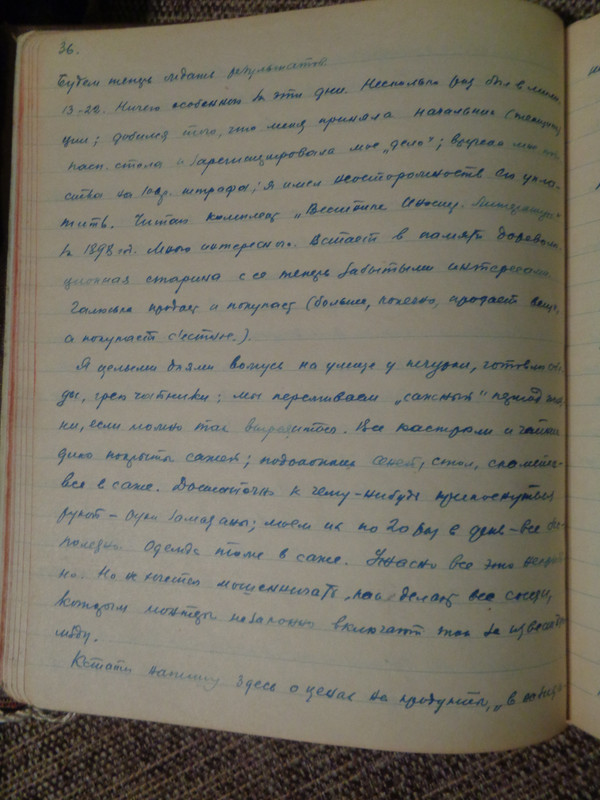 36.
Будем теперь ждать результатов.
13-22. Ничего особенного за эти дни. Несколько раз был в
ции; добился того, что меня приняла начальник (женщина)
пасп. стола и зарегистрировала мое „дело“;
ства на 10 кр. штрафа; я имел неосторожность его упла-
тить. Читаю комплект „Вестника Иностр. Литературы“
за 1898 г. Много интересного. Встает в памяти дореволю-
ционная старина с ее теперь забытыми интересами.
Галюська продает и покупает (больше, конечно, продает вещи,
а покупает съестное.).
Я целыми днями вожусь на улице у печурки, готовлю обе-
ды, грею чайники; мы переживаем „сажный“ период жиз-
ни, если можно так выразиться. Все кастрюли и чайники
дико покрыты сажей; подоконник, стол, скамейка-
все в саже. Достаточно к чему-нибудь прикоснуться
рукой – руки замазаны; моем их по 20 раз в день – все бес-
полезно. Одежда тоже в саже. Ужасно все это неприят-
но. Но не хочется мошенничать, как делают все соседи,
которым монтеры незаконно включают ток за известную
мзду.
Кстати напишу здесь о ценах на продукты, „в